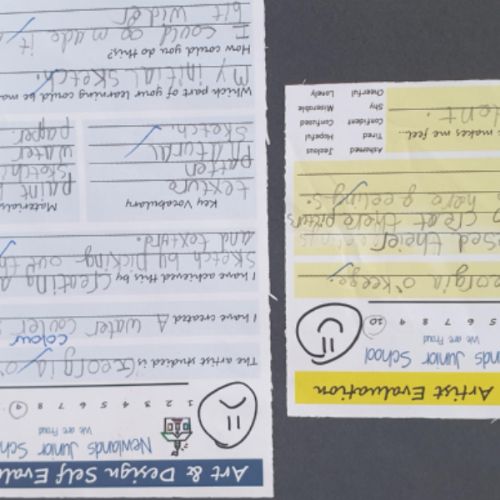 Art & Design Self Evalu
Newlands Junior Scho
We are Proud
1 2 3 4 5 6 7 8 9
The artist studied is Georgia O'
colour
I have created A water couler
I have achieved this by creating a
sketch by picking out th
and texthrd.
Key Vocabulary
texture
patten
natural
sketch.
Materials
paint
sketch
water
paper
Which part of your learning could be mo
My initial sketch.
How could you do this?
I could go made it
bit wider
Artist Evaluation
nds Junior School
We are Proud
5 6 7 8 9 10
eorgia o'keefe.
sed their
o creat there picturs
hero geelings.
makes me feel...
dent.
Ashamed
Tired
Confident
Shy
Cheerful
Jealous
Hopeful
Confused
Miserable
Lonely